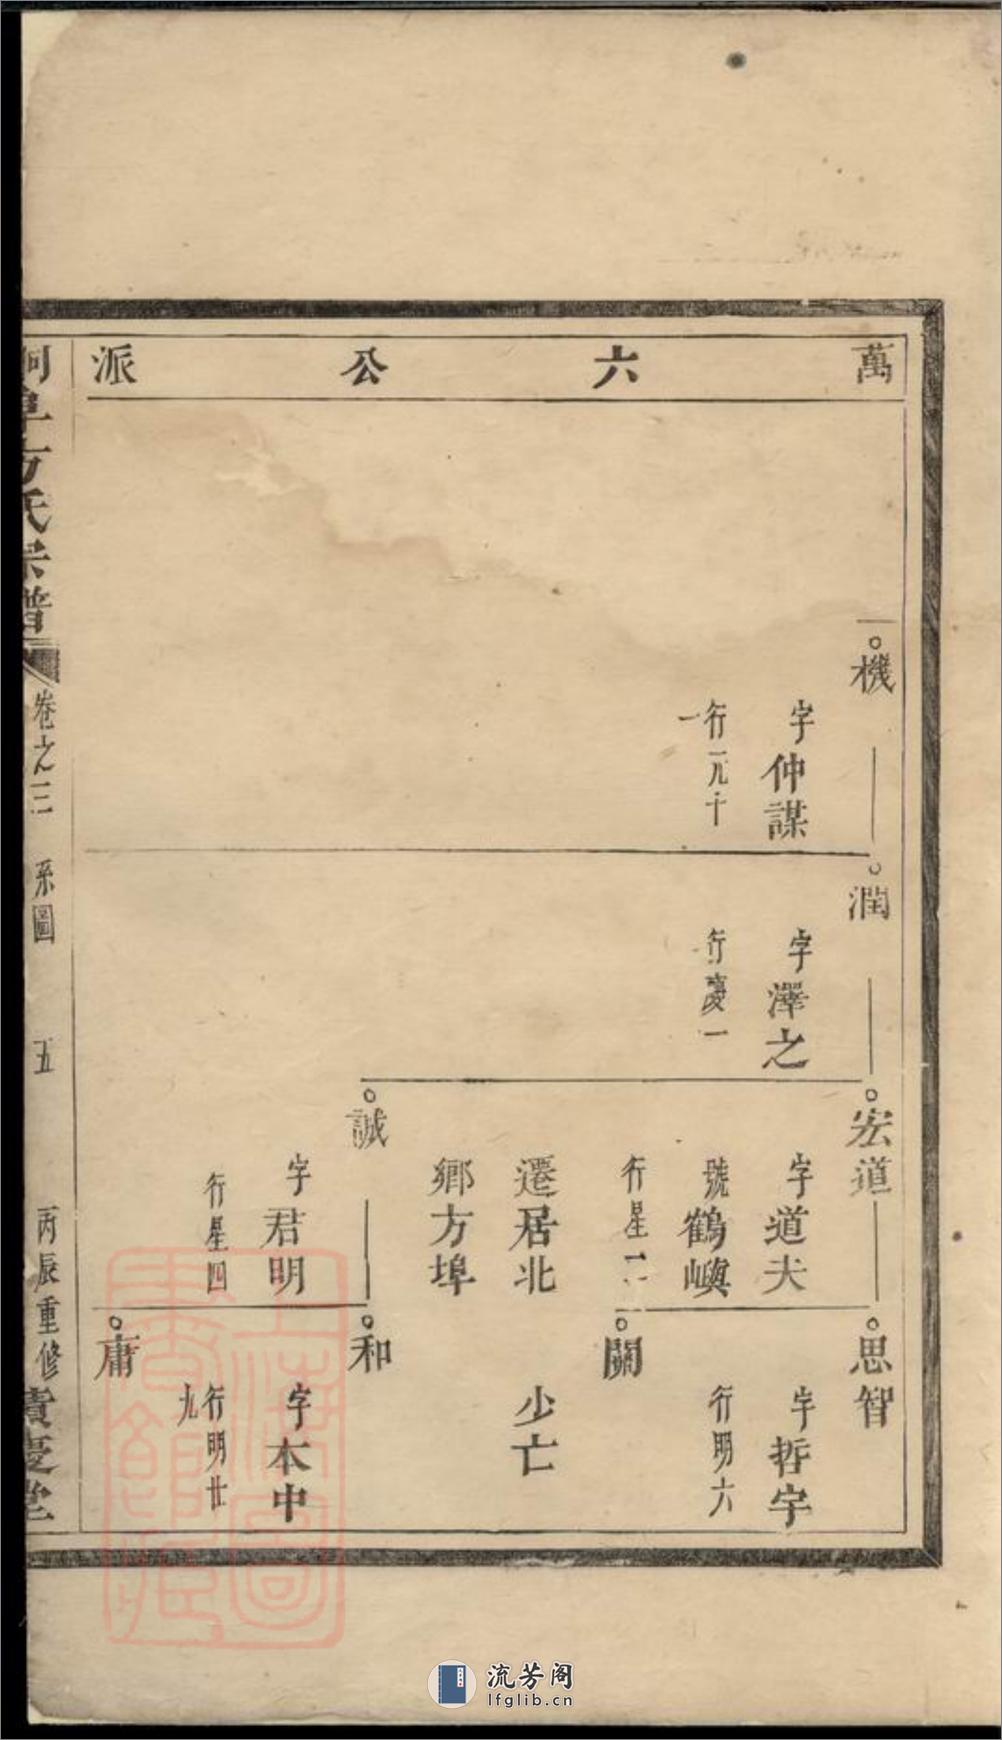 萬六公派
機
字仲謀
行元十
一
潤
字澤之
行慶一
宏道
字道夫
號鶴嶼
行星
遷居北
鄉方埠
誠
字君明
行星四
思智
字哲宇
行明六
關
少亡
和
字本中
行明廿
九
庸
方氏宗譜
卷之三 系圖 五 丙辰重修
上海圖書館藏
流芳阁
lfglib.cn